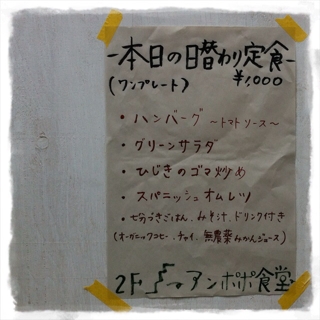 -本日の日替わり定食-
(ワンプレート) ¥1,000
・ハンバーグ ～トマトソース～
・グリーンサラダ
・ひじきのゴマ炒め
・スパニッシュオムレツ
・七分づきごはん、みそ汁、ドリンク付き
(オーガニックコーヒー、チャイ、無農薬みかんジュース)
2F アンポポ食堂